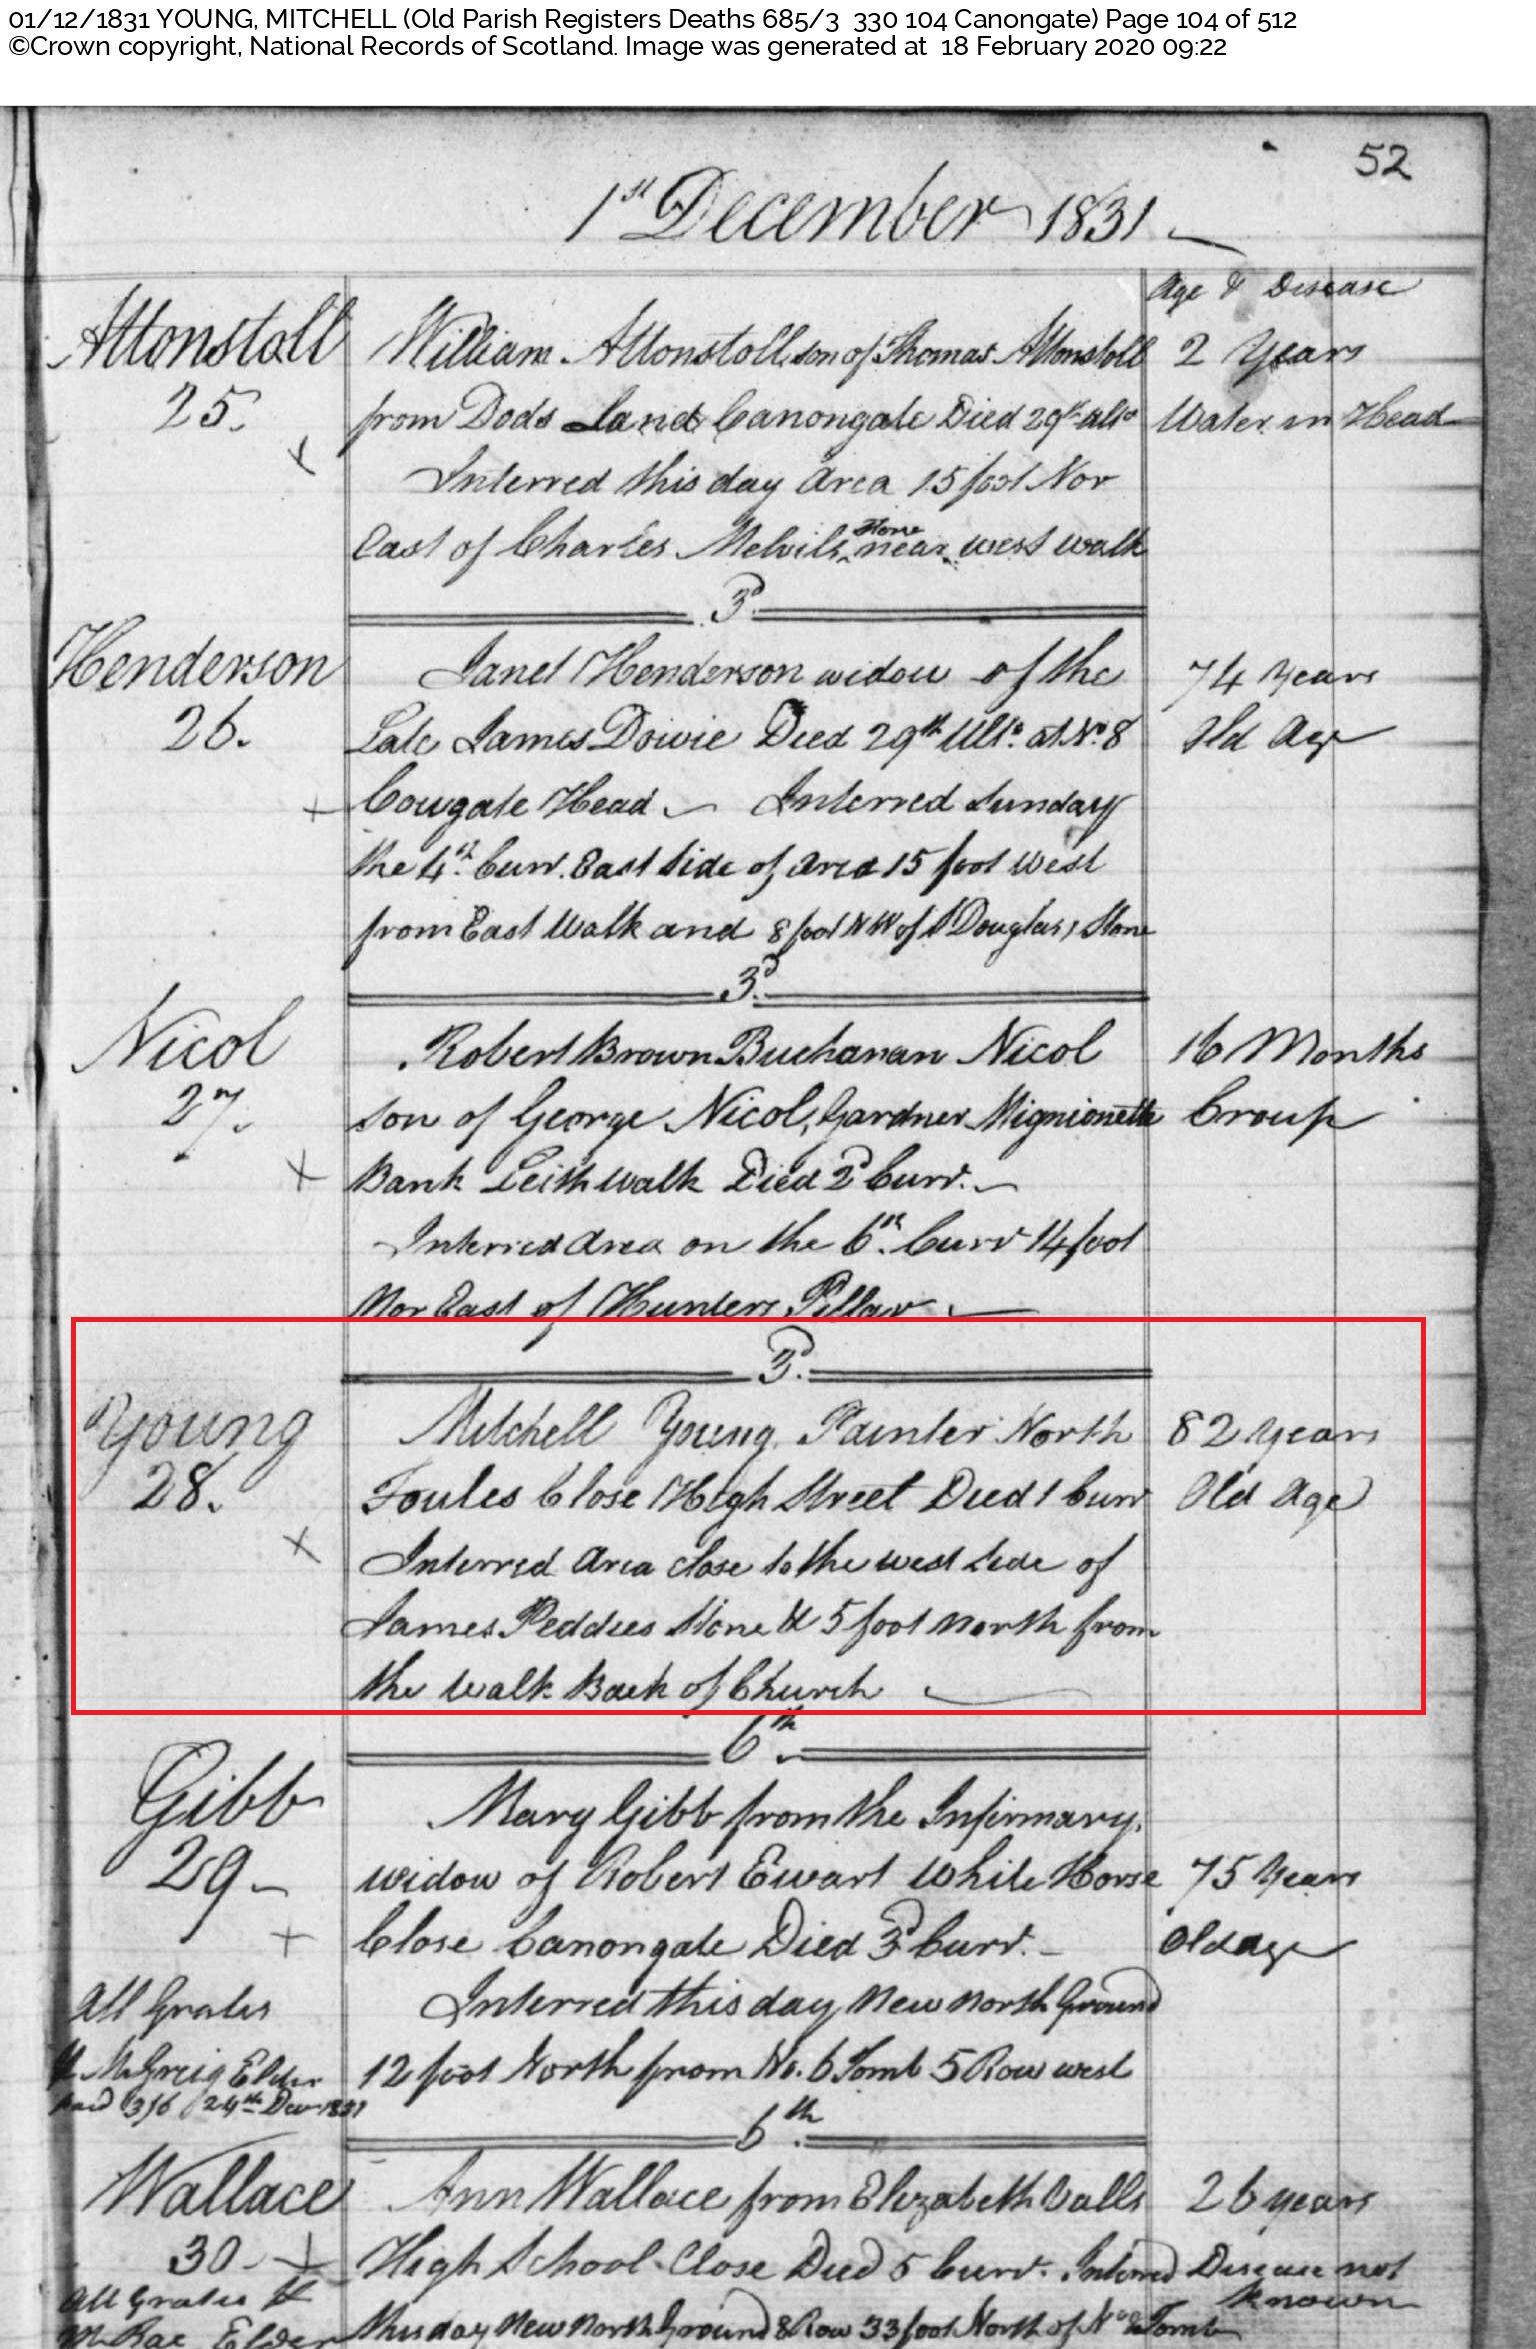 01/12/1831 YOUNG, MITCHELL (Old Parish Registers Deaths 685/3 330 104 Canongate) Page 104 of 512
©Crown copyright, National Records of Scotland. Image was generated at 18 February 2020 09:22
52
1st December 1831
Age & Disease
Attonstoll William Attonstoll son of Thomas Attonstoll 2 Years
25. from Dods Land Canongate Died 29th ulto Water in Head
Interred this day Area 15 foot Nor
East of Charles Melvils Stone near west walk
3d.
Henderson Janet Henderson widow of the 74 Years
26. Late James Dowie Died 29th Ulto. at No. 8 Old Age
Cowgate Head Interred Sunday
the 4th. Curr. East Side of Area 15 foot west
from East Walk and 8 foot NW of Douglas's Stone
3d.
Nicol Robert Brown Buchanan Nicol 16 Months
27. son of George Nicol, Gardner Mignionette Croup
Bank Leith Walk Died 2d Curr.
Interred Area on the 6th. Curr 14 foot
Nor East of Hunters Pillar
3d.
Young Mitchell Young Painter North 82 Years
28. Foules Close High Street Died 1 Curr Old Age
Interred Area close to the west side of
James Peddies Stone & 5 foot north from
the walk Back of Church
6th.
Gibb Mary Gibb from the Infirmary.
29 widow of Robert Ewart White Horse 75 Years
Close Canongate Died 3d Curr. Old age
All Gratis Interred this day New North Ground
McGreig Elder 12 foot North from No. 6 Tomb 5 Row west
Paid 3/6 24th Decr 1831
6th.
Wallace Ann Wallace from Elizabeth Valls 26 years
30 High School Close Died 5 Curr. Interred Disease not
All Gratis known
McRae Elder this day New North Ground 8 Row 33 foot North of No Tomb